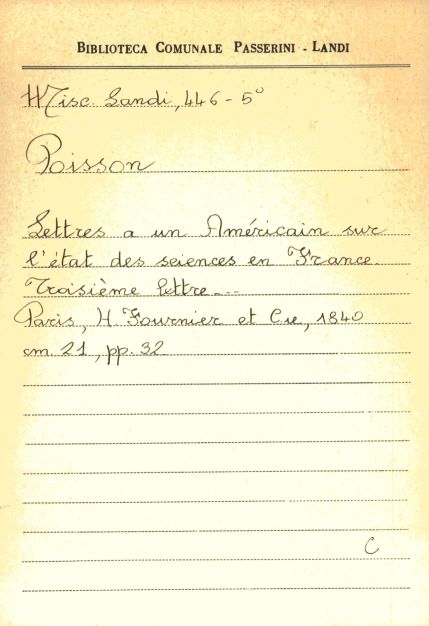 BIBLIOTECA COMUNALE PASSERINI - LANDI
Misc. Landi, 446 - 5°
Poisson
Lettres a un Américain sur
l'état des sciences en France.
Troisième lettre...
Paris, H. Fournier et Cie, 1840
cm. 21, pp. 32
C